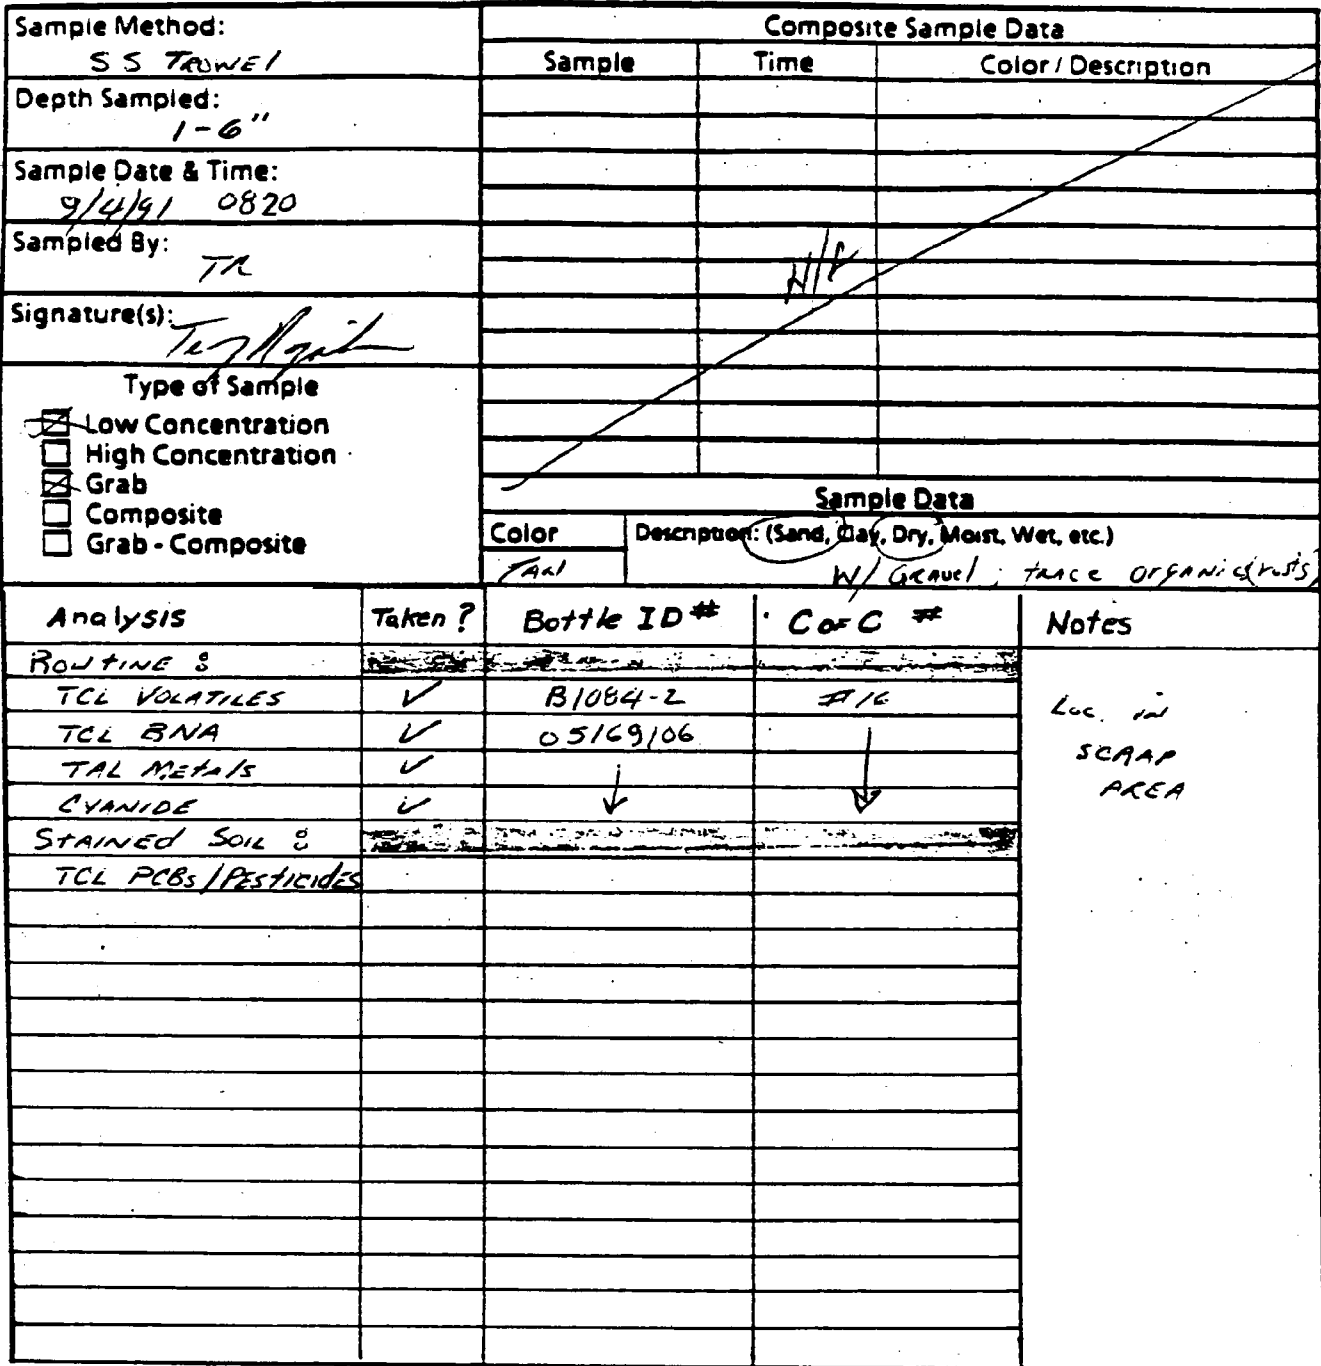 Sample Method:
SS TROWEl
Depth Sampled:
1-6"
Sample Date & Time:
9/4/91 0820
Sampled By:
TR
Signature(s):
Type of Sample
Low Concentration
High Concentration
Grab
Composite
Grab - Composite
Composite Sample Data
Sample Time Color / Description
N/A
Sample Data
Color Description: (Sand, Clay, Dry, Moist, Wet, etc.)
TAN W/ GRAVEl; trace organics (roots)
Analysis Taken? Bottle ID # C of C # Notes
ROUTINE :
TCL VOLATILES ✓ B1084-2 #16
TCL BNA ✓ 05169106 ↓
TAL METAls ✓ ↓
CYANIDE ✓
STAINED SOIL :
TCL PCBs / PESTICIDES
Loc. in
SCRAP
AREA